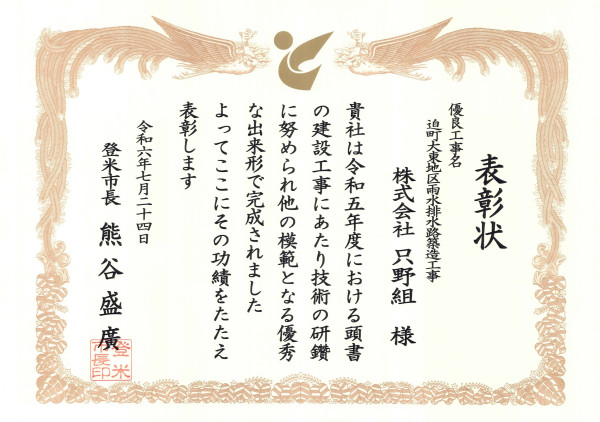 表彰状
優良工事名
迫町大東地区雨水排水路築造工事
株式会社 只野組 様
貴社は令和五年度における頭書
の建設工事にあたり技術の研鑽
に努められ他の模範となる優秀
な出来形で完成されました
よってここにその功績をたたえ
表彰します
令和六年七月二十四日
登米市長 熊谷盛廣
登米
市長印